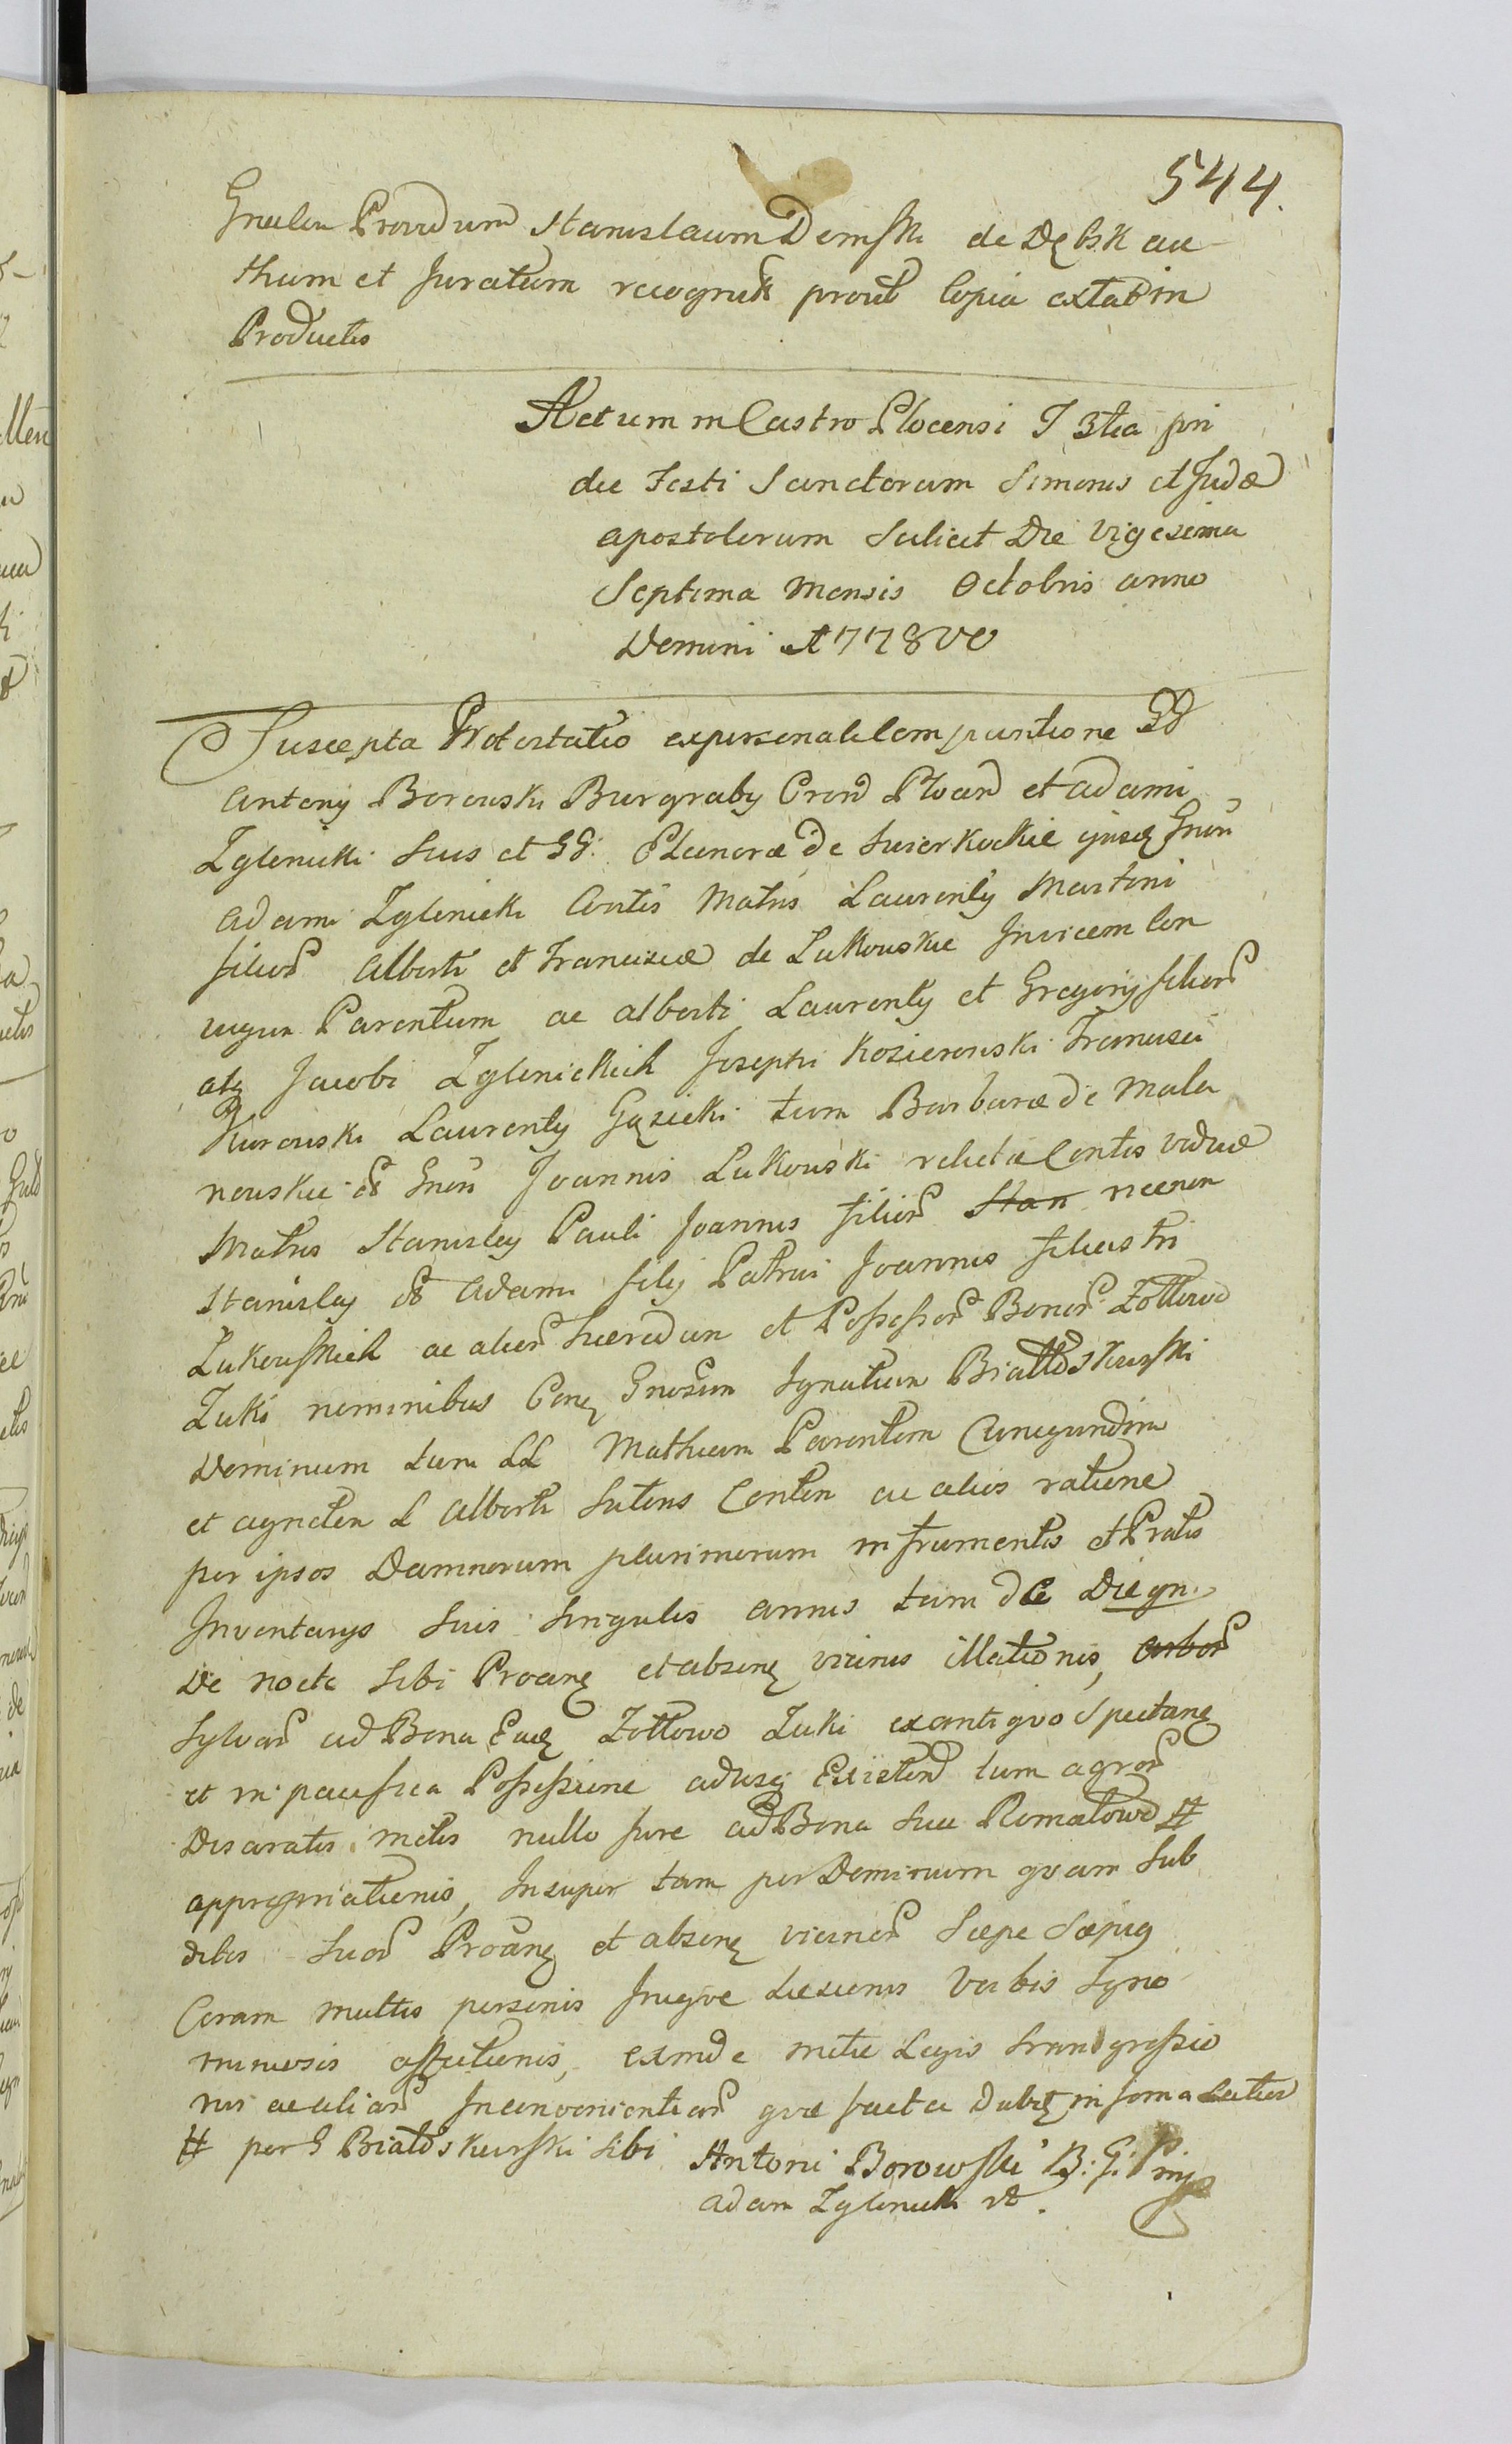 544.
Gnalem Providum Stanislaum Demski de Dębsk au
thum et Juratum recognit prout Copia extat in
Productis
Actum in Castro Plocensi F 3tia pri
die Festi Sanctorum Simonis et Judæ
Apostolorum Scilicet Die Vigesima
Septima Mensis Octobris anno
Domini 1778vo
Suscepta Protestatio ex personali Comparitione GG
Antonij Borowski Burgraby Cren Plocen et Adami
Zglenicki Suis et GG. Eleonoræ de Swierkockie ejusq Gnon
Adami Zglenicki Contis Matris Laurenty Martini
filior Alberti et Franciscæ de Lukowskie Invicem Con
iugun Parentum ac Alberti Laurenty et Gregorij filior
atq Jacobi Zglenickich Josephi Kosierowski Francisci
Kurowski Laurenty Gąsicki tum Barbaræ de Mala
nowskie et Gnon Joannis Lukowski relictæ Contis viduæ
Matris Stanislay Pauli Joannis filior Stan necnon
Stanislay et Adami filij Patrui Joannis filiastri
Lukowskich ac alior hæredum et Possessor Bonor Zottowo
Zuki nominibus Conq Gnosum Ignatium Białłoskurski
Dominum tum LL Mathiam Parentem Cunegundim
et Agnetem L Alberti Sutoris Conten ac alios ratione
per ipsos Damnorum plurimorum in frumentis et Pratis
Inventarys Suis Singulis annis tam de Die qn
De nocte Sibi Proanq et absenq vicinis illationis, arbor
Sylvar ad Bona Eadq Zottowo Zuki ex antiquo Spectanq
et in pacifica Possessione adusq Existen tum agror
Disaratis metis nullo Jure ad Bona Sua Romatowo #
appropriationis, Insuper tam per Dominum quam Sub
ditos Suos Proanq et absenq vicinor Sæpe Sæpiq
Coram multis personis Inique Læsionis Verbis Igno
miniosis affectionis, exinde metæ Legis transgressio
nis ac aliar Inconvenientiar quæ facta Dabiq in forma Latior
# per G Białoskurski Sibi
Antoni Borowski B: G: P mp
Adam Zglenicki